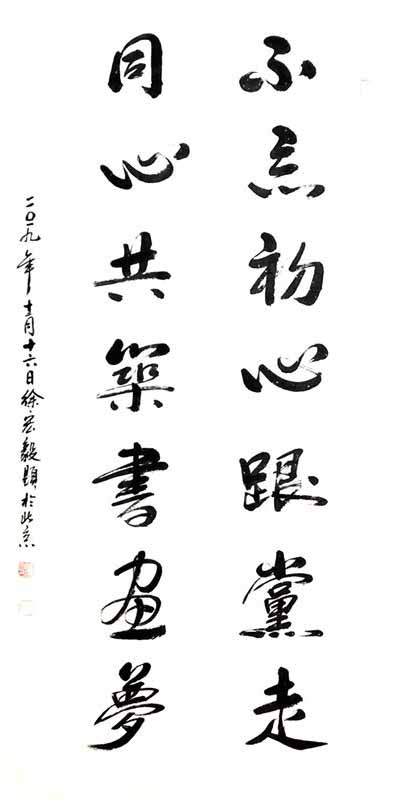 不忘初心跟黨走
同心共築書画夢
二〇一九年十一月十六日徐宏毅題於北京